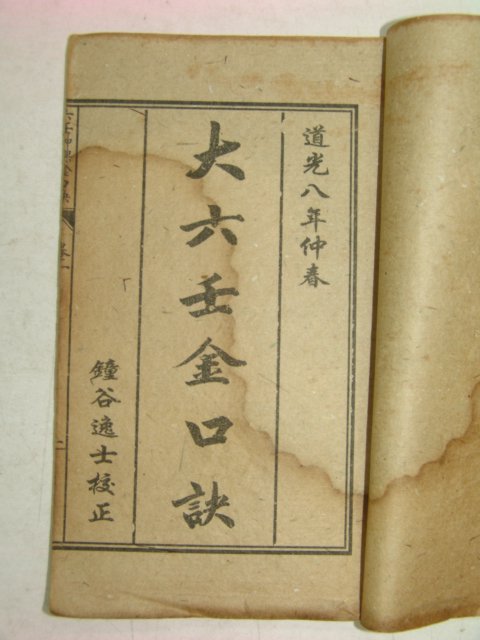 道光八年仲春
大六壬金口訣
鐘谷逸士校正